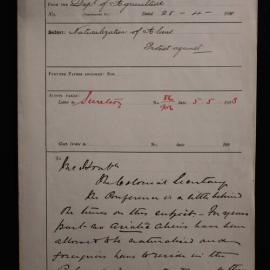 From the Dept of Agriculture
No. Dated 28 - 4 -
Subject: Naturalization of Aliens
Protest against
Further Papers enclosed:
Action taken:
Letter to Secretary No. Date 5/5
The Colonial Secretary
The Conference is a little behind
the times on this subject - For years
past no Asiatic Aliens have been
allowed to be naturalized and
foreigners have to reside in the